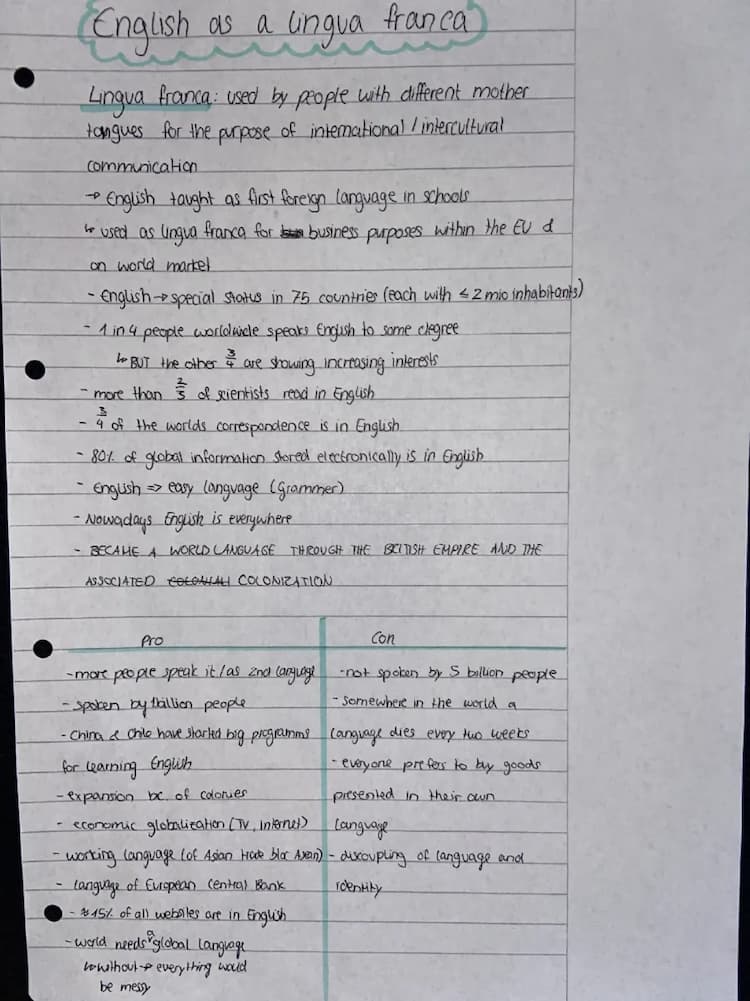 English as a lingua franca
Lingua franca: used by people with different mother
tongues for the purpose of international / intercultural
communication
→ English taught as first foreign language in schools
↳ used as lingua franca for business purposes within the EU &
on world market
- English → special status in 75 countries (each with ≤ 2 mio inhabitants)
- 1 in 4 people worldwide speaks English to some degree
↳ BUT the other 3/4 are showing increasing interests
- more than 2/3 of scientists read in English
- 3/4 of the worlds correspondence is in English
- 80% of global information stored electronically is in English
- English => easy language (Grammer)
- Nowadays English is everywhere
- BECAME A WORLD LANGUAGE THROUGH THE BRITISH EMPIRE AND THE
ASSOCIATED COLONIZATION
Pro
- more people speak it / as 2nd language
- spoken by people
- China & Chile have started big programms
for learning English
- expansion bc of colonies
- economic globalization (TV, Internet)
- working language (of Asian trade bloc)
- language of European Central Bank
- of all websites are in English
- world needs a global language
↳ without → everything would
be messy
Con
- not spoken by 5 billion people
- somewhere in the world a
language dies every two weeks
- everyone prefers to by goods
presented in their own
language
- discoupling of language and
identity